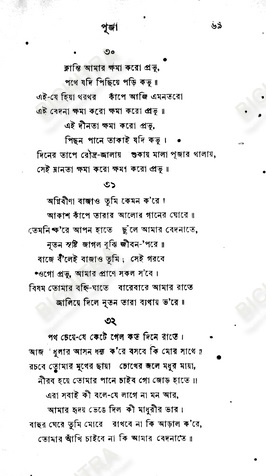 পূজা ৬৯
৩০
ক্লান্তি আমার ক্ষমা করো প্রভু,
পথে যদি পিছিয়ে পড়ি কভু॥
এই-যে হিয়া থরথর কাঁপে আজি এমনতরো
এই বেদনা ক্ষমা করো ক্ষমা করো প্রভু॥
এই দীনতা ক্ষমা করো প্রভু,
পিছন পানে তাকাই যদি কভু।
দিনের তাপে রৌদ্র-জ্বালায় শুকায় মালা পূজার থালায়,
সেই ম্লানতা ক্ষমা করো ক্ষমা করো প্রভু॥
৩১
অগ্নিবীণা বাজাও তুমি কেমন ক'রে!
আকাশ কাঁপে তারার আলোর গানের ঘোরে॥
তেমনি ক'রে আপন হাতে ছুঁলে আমার বেদনাতে,
নূতন সৃষ্টি জাগল বুঝি জীবন-'পরে॥
বাজে ব'লেই বাজাও তুমি; সেই গরবে
ওগো প্রভু, আমার প্রাণে সকল স'বে।
বিষম তোমার বহ্নি-ঘাতে বারেবারে আমার রাতে
জ্বালিয়ে দিলে নূতন তারা ব্যথায় ভ'রে॥
৩২
পথ চেয়ে-যে কেটে গেল কত দিনে রাতে।
আজ ধুলার আসন ধন্য ক'রে বসবে কি মোর সাথে॥
রচবে তোমার মুখের ছায়া চোখের জলে মধুর মায়া,
নীরব হয়ে তোমার পানে চাইব গো জোড় হাতে॥
এরা সবাই কী বলে-যে লাগে না মন আর,
আমার হৃদয় ভেঙে দিল কী মাধুরীর ভার।
বাহুর ঘেরে তুমি মোরে রাখবে না কি আড়াল ক'রে,
তোমার আঁখি চাইবে না কি আমার বেদনাতে॥